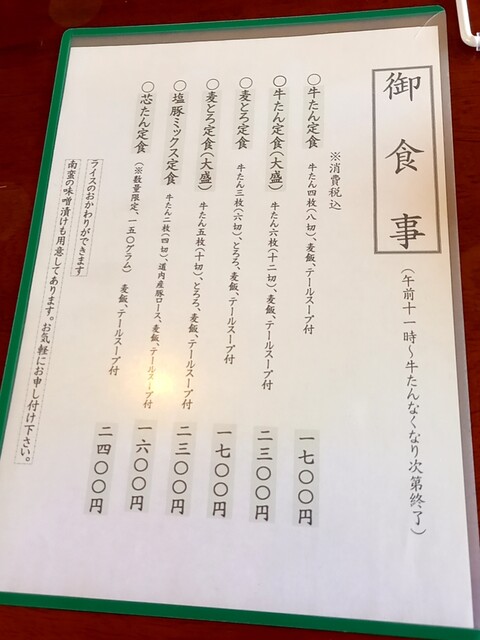 御食事
(午前十一時～牛たんなくなり次第終了)
※消費税込
○牛たん定食 牛たん四枚(八切)、麦飯、テールスープ付 一七〇〇円
○牛たん定食(大盛) 牛たん六枚(十二切)、麦飯、テールスープ付 二三〇〇円
○麦とろ定食 牛たん三枚(六切)、とろろ、麦飯、テールスープ付 一七〇〇円
○麦とろ定食(大盛) 牛たん五枚(十切)、とろろ、麦飯、テールスープ付 二三〇〇円
○塩豚ミックス定食 牛たん二枚(四切)、道内産豚ロース、麦飯、テールスープ付 一六〇〇円
○芯たん定食 (※数量限定、一五〇グラム) 麦飯、テールスープ付 二四〇〇円
ライスのおかわりができます
南蛮の味噌漬けも用意してあります。お気軽にお申し付け下さい。